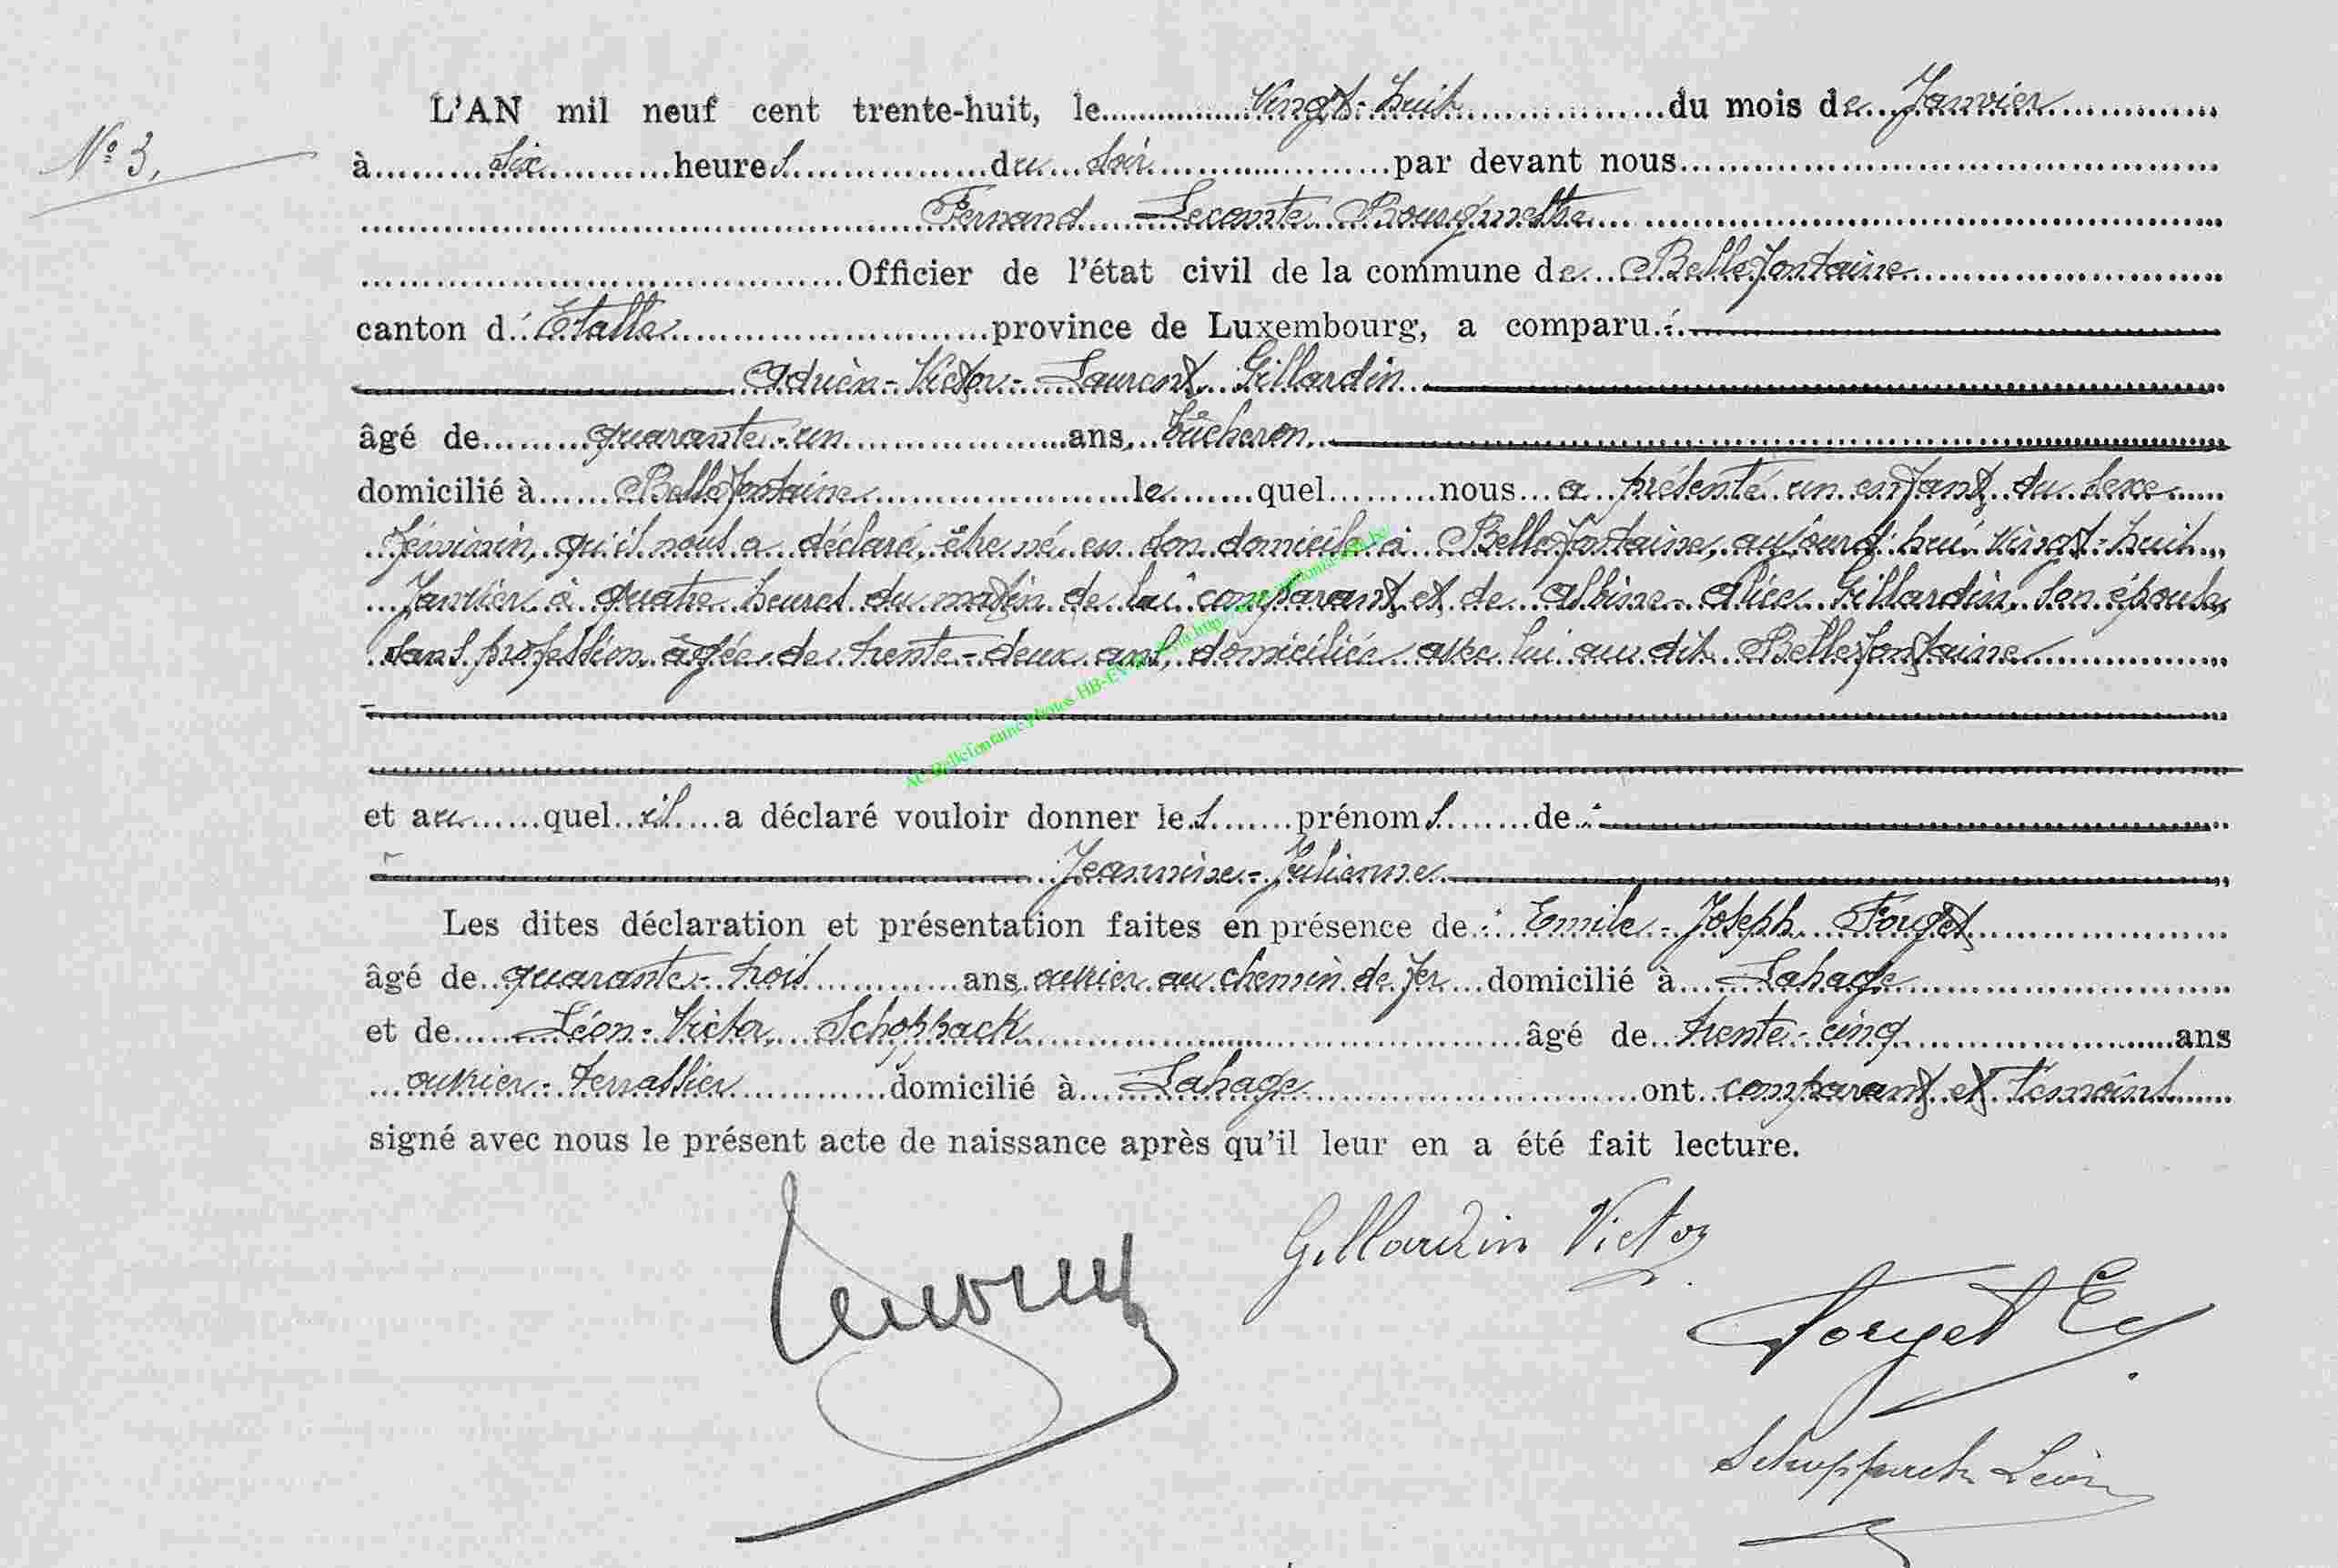 L'AN mil neuf cent trente-huit, le Vingt-huit du mois de Janvier
N° 3,
à six heures du soir par devant nous
Fernand Lecomte Bourgmestre
Officier de l'état civil de la commune de Bellefontaine
canton d'Etalle province de Luxembourg, a comparu :
Adrien-Victor-Laurent Gillardin
âgé de quarante-un ans, bûcheron
domicilié à Bellefontaine lequel nous a présenté un enfant du sexe
féminin, qu'il nous a déclaré, être né en son domicile à Bellefontaine, aujourd'hui vingt-huit
Janvier à quatre heures du matin de lui comparant et de Albine-Alice Gillardin, son épouse,
sans profession âgée de trente-deux ans, domiciliée avec lui au dit Bellefontaine
AC Bellefontaine Photos HB-E
et auquel il a déclaré vouloir donner les prénoms de :
Jeannine-Julienne
Les dites déclaration et présentation faites en présence de : Emile-Joseph Forget
âgé de quarante-trois ans, ouvrier au chemin de fer domicilié à Lahage
et de Léon-Victor Schoppach âgé de trente-cinq ans
ouvrier-terrassier domicilié à Lahage ont comparant et témoins
signé avec nous le présent acte de naissance après qu'il leur en a été fait lecture.
Gillardin Victor
Forget E
Schoppach Léon